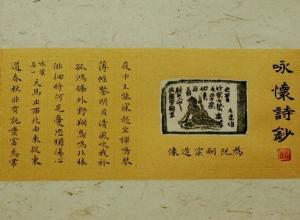 咏懷詩鈔
爲阮嗣宗造像
夜中不能寐起坐彈鳴琴
薄帷鑒明月清風吹我衿
孤鴻號外野翔鳥鳴北林
徘徊將何見憂思獨傷心
天馬出西北由來從東
道春秋非有託富貴焉常